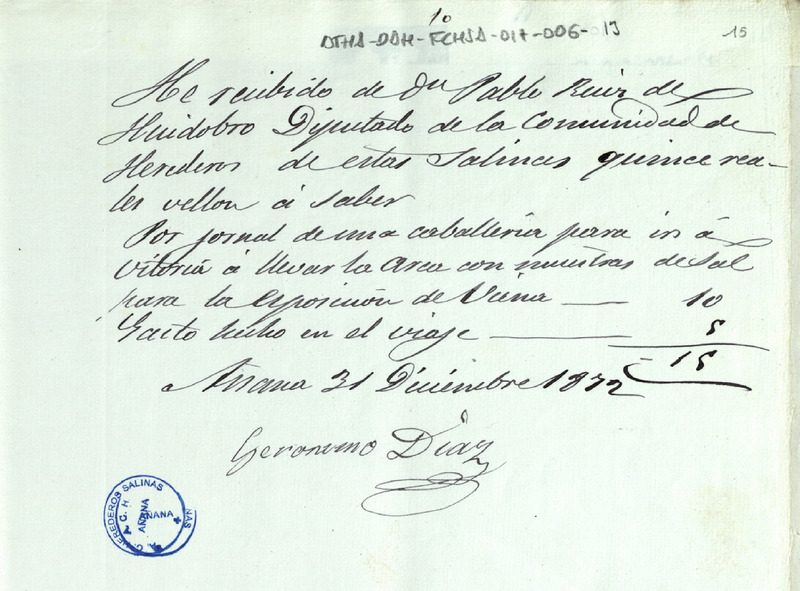 10
DTHA-DAH-FCHSA-017-006-013
15
He recibido de Dn Pablo Ruiz de
Huidobro Diputado de la Comunidad de
Herederos de estas Salinas quince rea-
les vellon á saber
Por jornal de una caballeria para ir á
Vitoria á llevar la Arca con muestras de Sal
para la esposición de Viena — 10
Gasto hecho en el viaje — 5
15
Añana 31 Diciembre 1872
Geronimo Diaz
HEREDEROS SALINAS
AÑANA
AÑANA